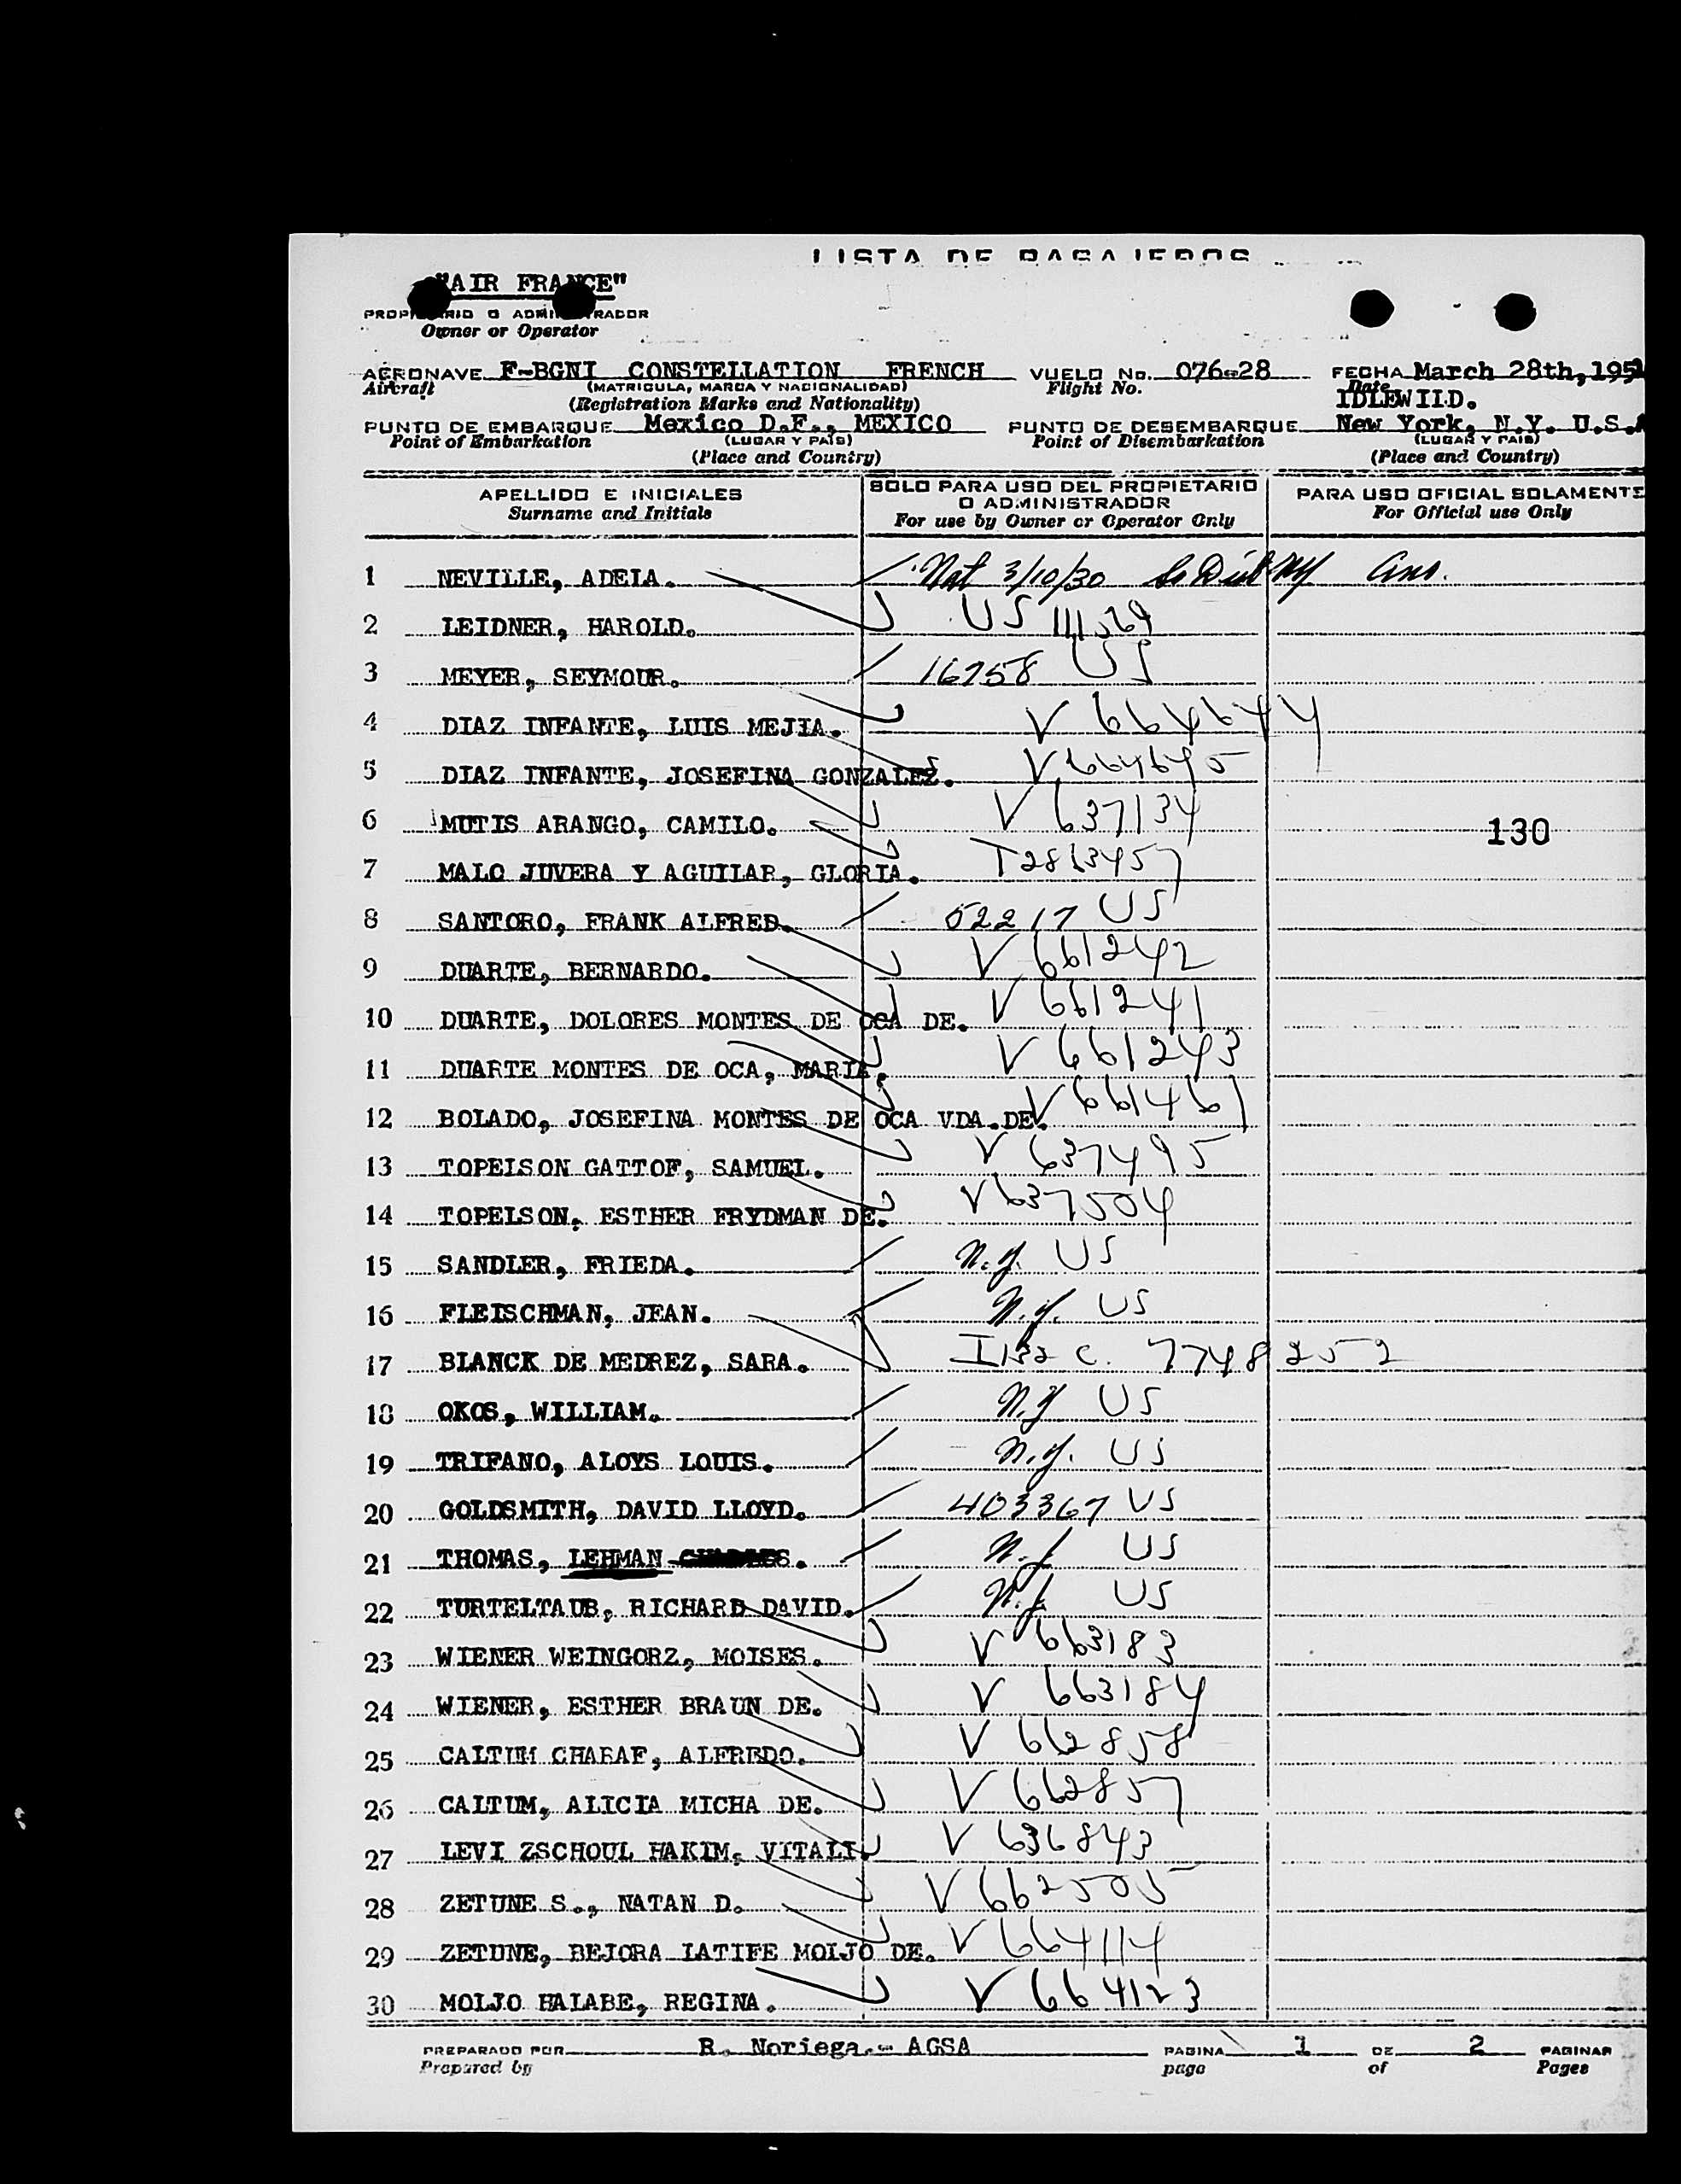 LISTA DE PASAJEROS
"AIR FRANCE"
PROPIETARIO O ADMINISTRADOR
Owner or Operator
AERONAVE F-BGNI CONSTELLATION FRENCH VUELO No. 076-28 FECHA March 28th, 195
Aircraft (MATRICULA, MARCA Y NACIONALIDAD) Flight No. Date
(Registration Marks and Nationality) IDLEWILD.
PUNTO DE EMBARQUE Mexico D.F., MEXICO PUNTO DE DESEMBARQUE New York, N.Y. U.S.A
Point of Embarkation (LUGAR Y PAIS) Point of Disembarkation (LUGAR Y PAIS)
(Place and Country) (Place and Country)
APELLIDO E INICIALES SOLO PARA USO DEL PROPIETARIO O ADMINISTRADOR PARA USO OFICIAL SOLAMENTE
Surname and Initials For use by Owner or Operator Only For Official use Only
1 NEVILLE, ADELA. Nat 3/10/30 So Dist NY
2 LEIDNER, HAROLD. US
3 MEYER, SEYMOUR. 16758 US
4 DIAZ INFANTE, LUIS MEJIA. V 664644
5 DIAZ INFANTE, JOSEFINA GONZALEZ. V 664645
6 MUTIS ARANGO, CAMILO. V 637134
130
7 MALO JUVERA Y AGUILAR, GLORIA. T2813457
8 SANTORO, FRANK ALFRED. 52217 US
9 DUARTE, BERNARDO. V 661242
10 DUARTE, DOLORES MONTES DE OCA DE. V 661241
11 DUARTE MONTES DE OCA, MARIA. V 661243
12 BOLADO, JOSEFINA MONTES DE OCA VDA.DE. V 661461
13 TOPELSON GATTOF, SAMUEL. V 637495
14 TOPELSON, ESTHER FRYDMAN DE. V 637504
15 SANDLER, FRIEDA. N.Y. US
16 FLEISCHMAN, JEAN. N.Y. US
17 BLANCK DE MEDREZ, SARA. I132 C. 7748252
18 OKOS, WILLIAM. N.Y US
19 TRIFANO, ALOYS LOUIS. N.Y. US
20 GOLDSMITH, DAVID LLOYD. 403367 US
21 THOMAS, LEHMAN US
22 TURTELTAUB, RICHARD DAVID. US
23 WIENER WEINGORZ, MOISES. V 663183
24 WIENER, ESTHER BRAUN DE. V 663184
25 CALTUM CHARAF, ALFREDO. V 662858
26 CALTUM, ALICIA MICHA DE. V 662857
27 LEVI ZSCHOUL HAKIM, VITALI. V 636843
28 ZETUNE S., NATAN D. V 662505
29 ZETUNE, BEJORA LATIFE MOLJO DE. V 664114
30 MOLJO HALABE, REGINA. V 664123
PREPARADO POR R. Noriega.- AGSA PAGINA 1 DE 2 PAGINAS
Prepared by page of Pages